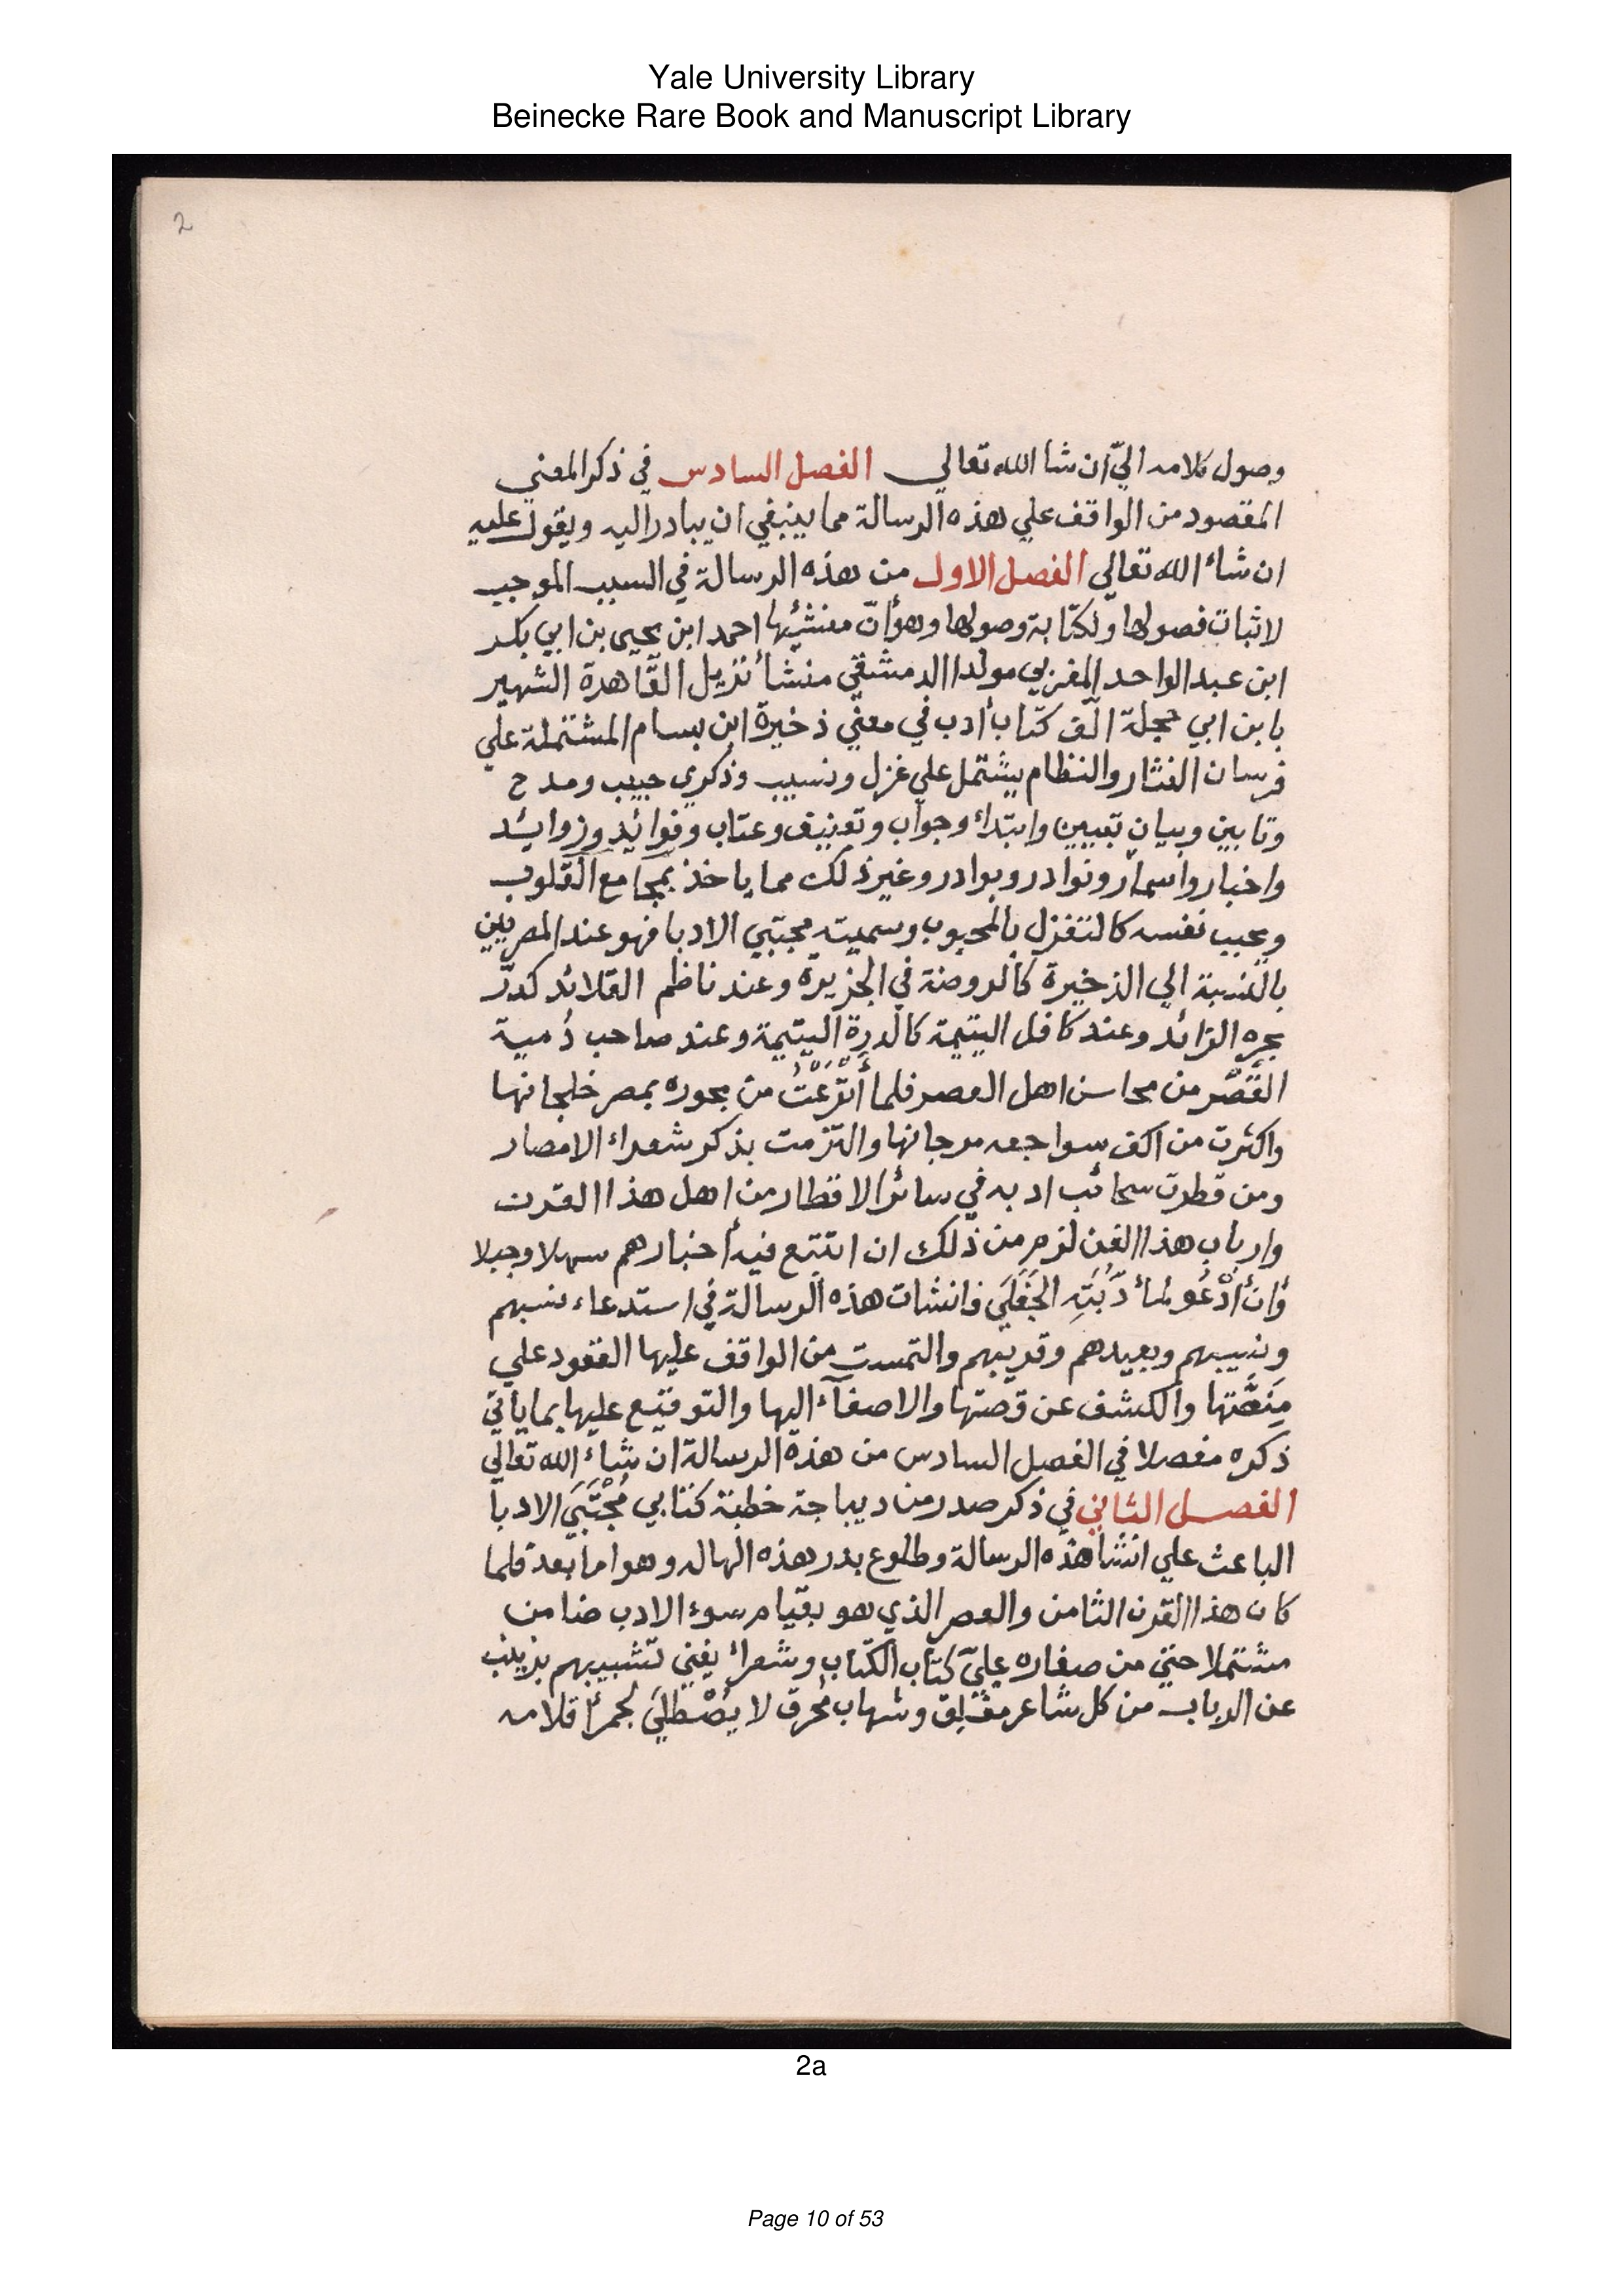 Yale University Library
Beinecke Rare Book and Manuscript Library
2
وصول كلامه اليّ ان شا الله تعالي الفصل السادس في ذكر المعني
المقصود من الواقف علي هذه الرسالة مما ينبغي ان يبادر اليه ويقول عليه
ان شاء الله تعالي الفصل الاول من هذه الرسالة في السبب الموجب
لاثبات فصولها ولكتابة وصولها وهو أنّ منشئها احمد ابن يحيى بن ابي بكر
ابن عبد الواحد المغربي مولدا الدمشقي منشأ نزيل القاهرة الشهير
بابن ابي حجلة الّف كتاب أدب في معني ذخيرة ابن بسام المشتملة علي
فرسان النثار والنظام يشتمل علي غزل ونسيب وذكري حبيب ومدح
وتابين وبيان تبيين وابتداء وجواب وتعنيف وعتاب وفوائد وزوايد
واخبار واسمار ونوادر وبوادر وغير ذلك مما ياخذ بمجامع القلوب
ويحبب نفسه كالتغزل بالمحبوب وسميته مجتبي الادبا فهو عند المصريين
بالنسبة الي الذخيرة كالروضة في الجزيرة وعند ناظم القلائد كدرّ
بحره الزائد وعند كافل اليتيمة كالدرة اليتيمة وعند صاحب دُمية
القَصْر من محاسن اهل العصر فلما أَتْرَعَتْ من بحوره بمصر خلجانها
واكثرت من اكف سواجعه مرجانها والتزمت بذكر شعراء الامصار
ومن قطرت سحائب ادبه في سائر الاقطار من اهل هذا القرن
وارباب هذا الفن لزم من ذلك ان اتتبع فيه أخبارهم سهلا وجبلا
وَأن أَدْعُو لمأدُبَتِهِ الجَفَلَي فانشات هذه الرسالة في استدعاء نسبهم
ونسيبهم وبعيدهم وقريبهم والتمست من الواقف عليها القعود علي
مِنَصَّتها والكشف عن قصتها والاصغآء اليها والتوقيع عليها بما ياتي
ذكره مفصلا في الفصل السادس من هذه الرسالة ان شاء الله تعالي
الفصل الثاني في ذكر صدر من ديباجة خطبة كتابي مُجْتَبَي الادبا
الباعث علي انشا هذه الرسالة وطلوع بدر هذه الهاله وهو اما بعد فلما
كان هذا القرن الثامن والعصر الذي هو بقيام سوء الادب ضامن
مشتملا حتي من صغاره عليّ كتاب الكتاب وشعراء يغني تشبيبهم بزينب
عن الرباب من كل شاعر مفلق وشهاب مُحرق لا يُصْطَلَي لجمر أقلامه
2a
Page 10 of 53